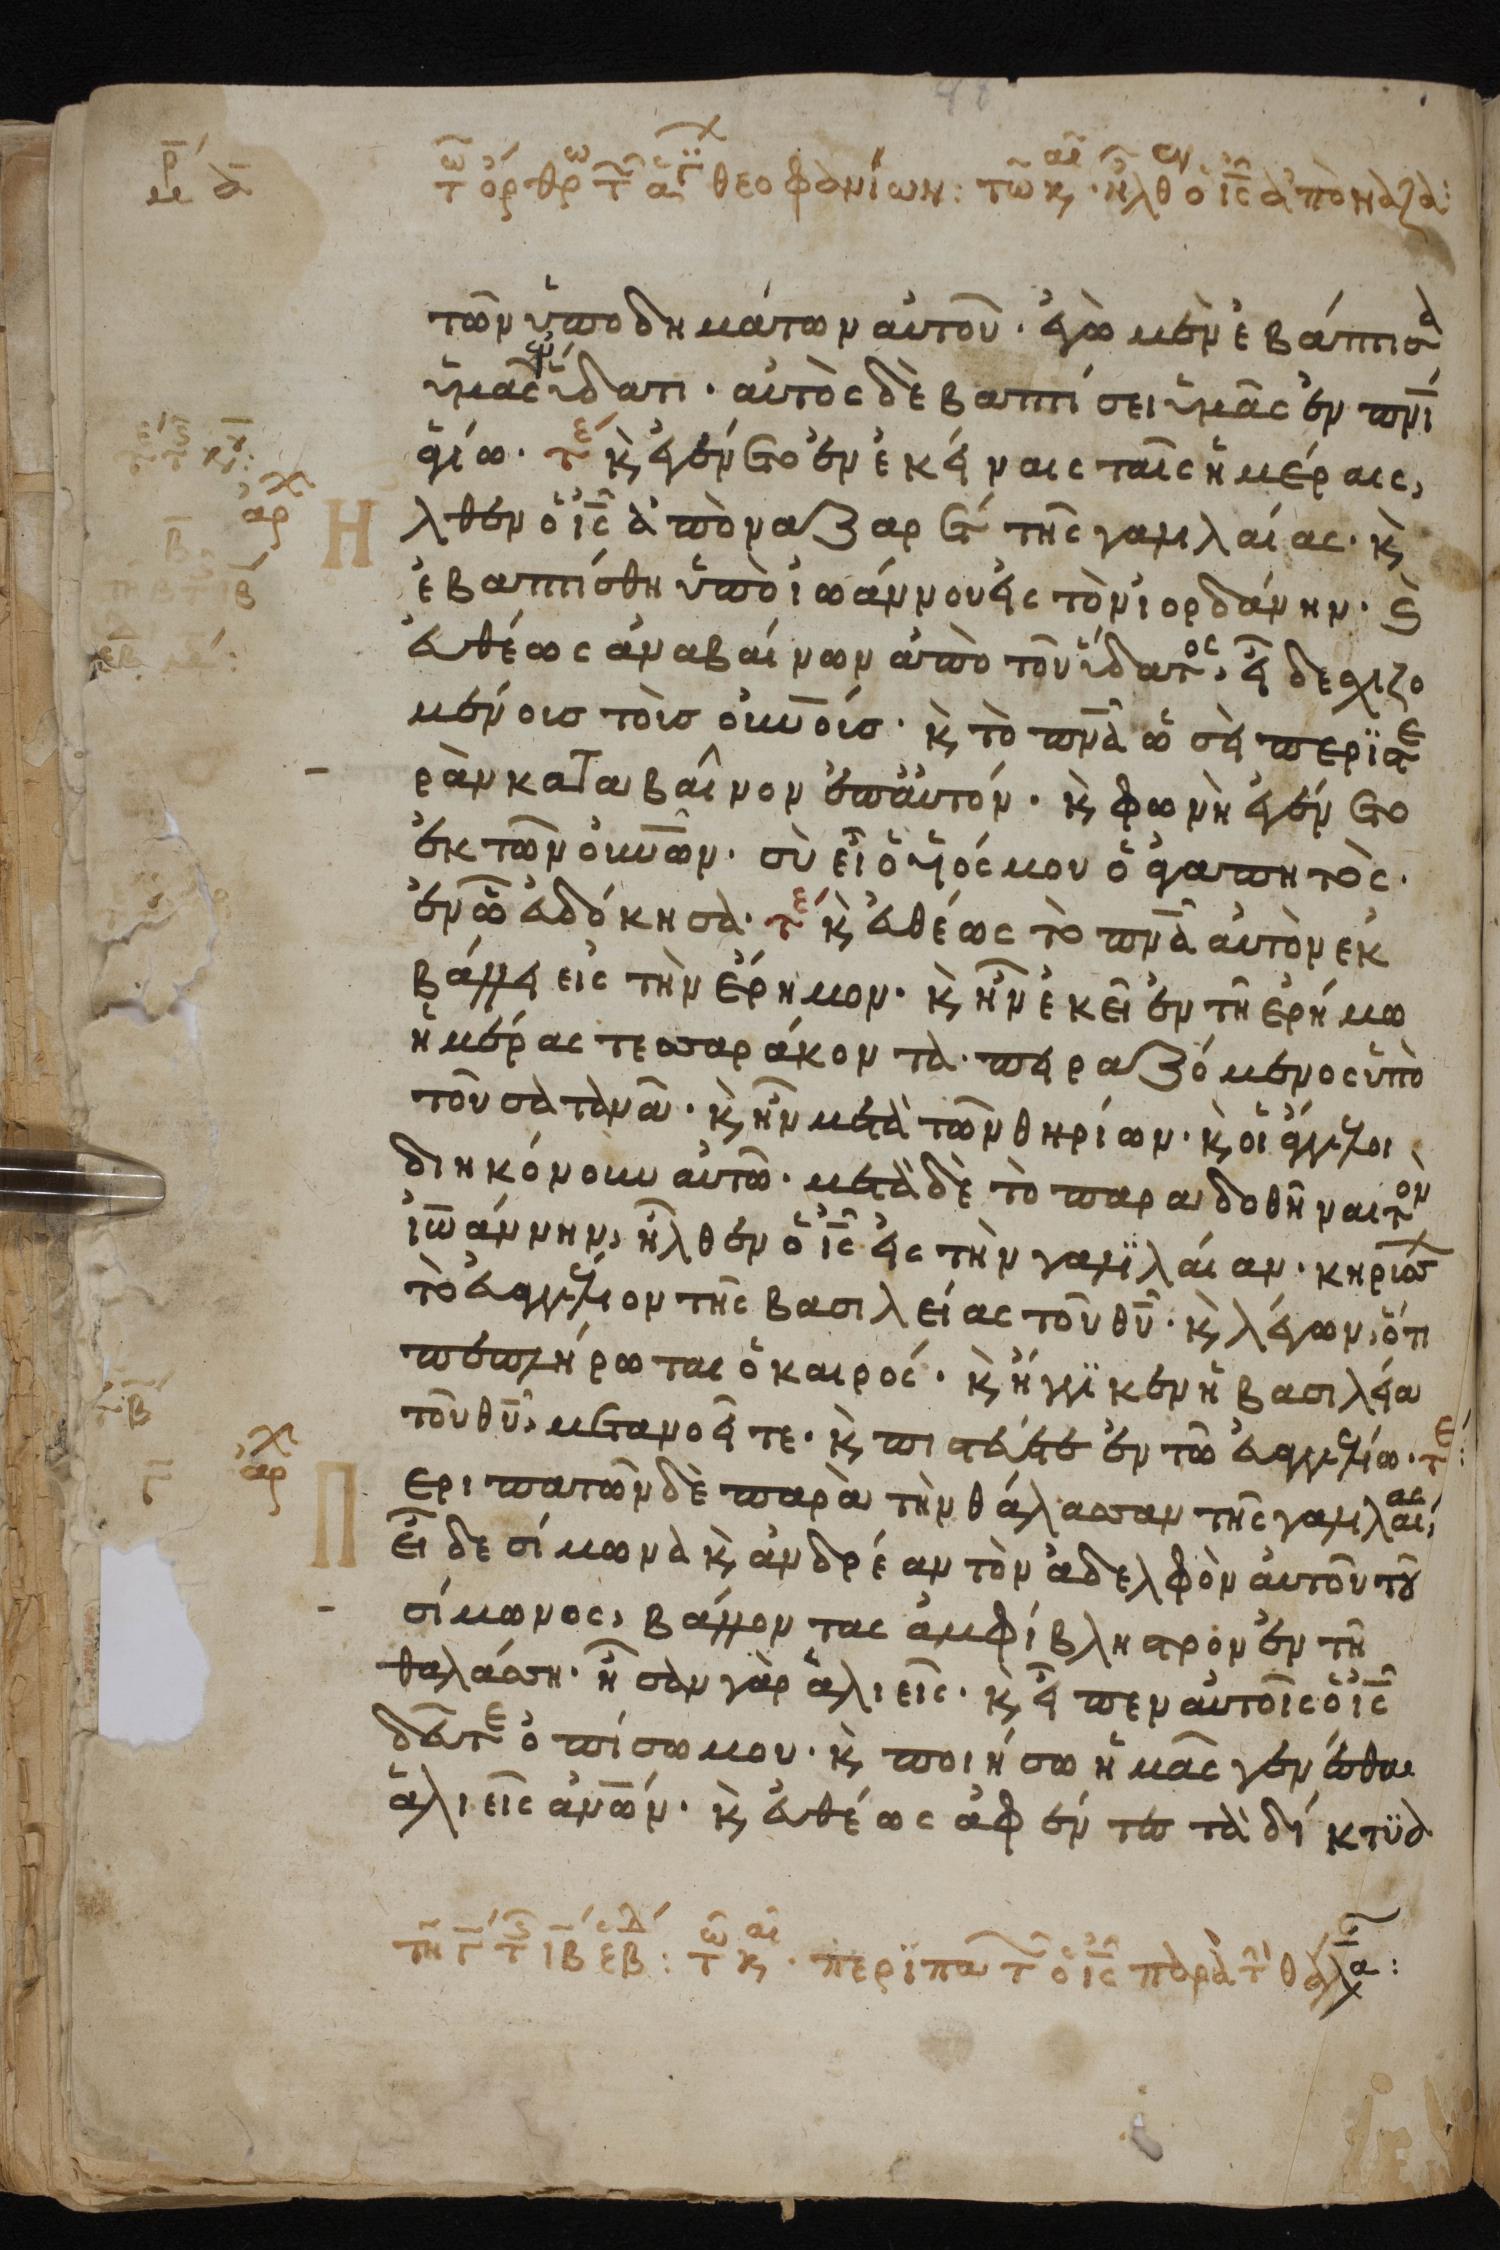 τῶ ὄρθρω τῶν ἁγί θεοφανίων: τῶ καιῶ ἦλθεν ὁ ἰς ἀπὸ ναζα:
τῶν ὑποδημάτων αὐτοῦ· ἐγὼ μὲν ἐβάπτισα
ὑμᾶς ἐν ὕδατι· αὐτὸς δὲ βαπτίσει ὑμᾶς ἐν πνι
ἁγίω· τε κ ἐγένετο ἐν ἐκείναις ταῖς ἡμέραις,
Ηλθεν ὁ ις ἀπὸ ναζαρετ τῆς γαλιλαίας· κ
ἐβαπτίσθη ὑπὸ ἰωάννου εἰς τὸν ἰορδάνην· κ
εὐθέως ἀναβαίνων ἀπὸ τοῦ ὕδατος, εἶδε σχιζο
μένοισ τοὺσ οὐνοὺσ· κ τὸ πνα ὡσεὶ περϊστε
ρὰν καταβαῖνον ἐπ αὐτόν· κ φωνὴ ἐγένετο
ἐκ τῶν οὐνῶν· σὺ εἶ ὁ ὑιός μου ὁ ἀγαπητὸς·
ἐν ῶ εὐδόκησα· τε κ εὐθέως τὸ πνα αὐτὸν εκ
βάλλει εἰς τὴν ἔρημον· κ ἦν ἐκεῖ ἐν τῆ ἐρήμω
ἡμέρας τεσσαράκοντα· πειραζόμενος ὑπὸ
τοῦ σατανᾶ· κ ἦν μετὰ τῶν θηρίων· κ οἱ ἄγγελοι
διηκόνουν αὐτῶ· μετὰ δὲ τὸ παραδοθῆναι τὸν
ἰωάννην, ἦλθεν ὁ ις εἰς τὴν γαλϊλαίαν· κηρύσσ
τὸ εὐαγγέλιον τῆς βασιλείας τοῦ θυ· κ λέγων, ὅτι
πεπλήρωται ὁ καιρός· κ ἤγγϊκεν ἡ βασιλεία
τοῦ θυ, μετανοεῖτε· κ πιστεύετε ἐν τῶ εὐαγγελίω· τε:
Περιπατῶν δὲ παρὰ τὴν θάλασσαν τῆς γαλιλαίας,
εἶδε σίμωνα κ ἀνδρέαν τὸν ἀδελφὸν αὐτοῦ τοῦ
σίμωνος, βάλλοντας ἀμφίβληστρον ἐν τῆ
θαλάσση· ἦσαν γὰρ ἁλιεῖς· κ εἶπεν αὐτοῖς ὁ ις
δεῦτε ὀπίσω μου· κ ποιήσω ἡμᾶς γενέσθαι
ἁλιεῖς ἀνων· κ εὐθέως ἀφέντες τὰ δίκτϋα
τῆ γ τ ιβ εβ: τῶ καιῶ· περϊπατ ὁ ις παρὰ τ θάλα: